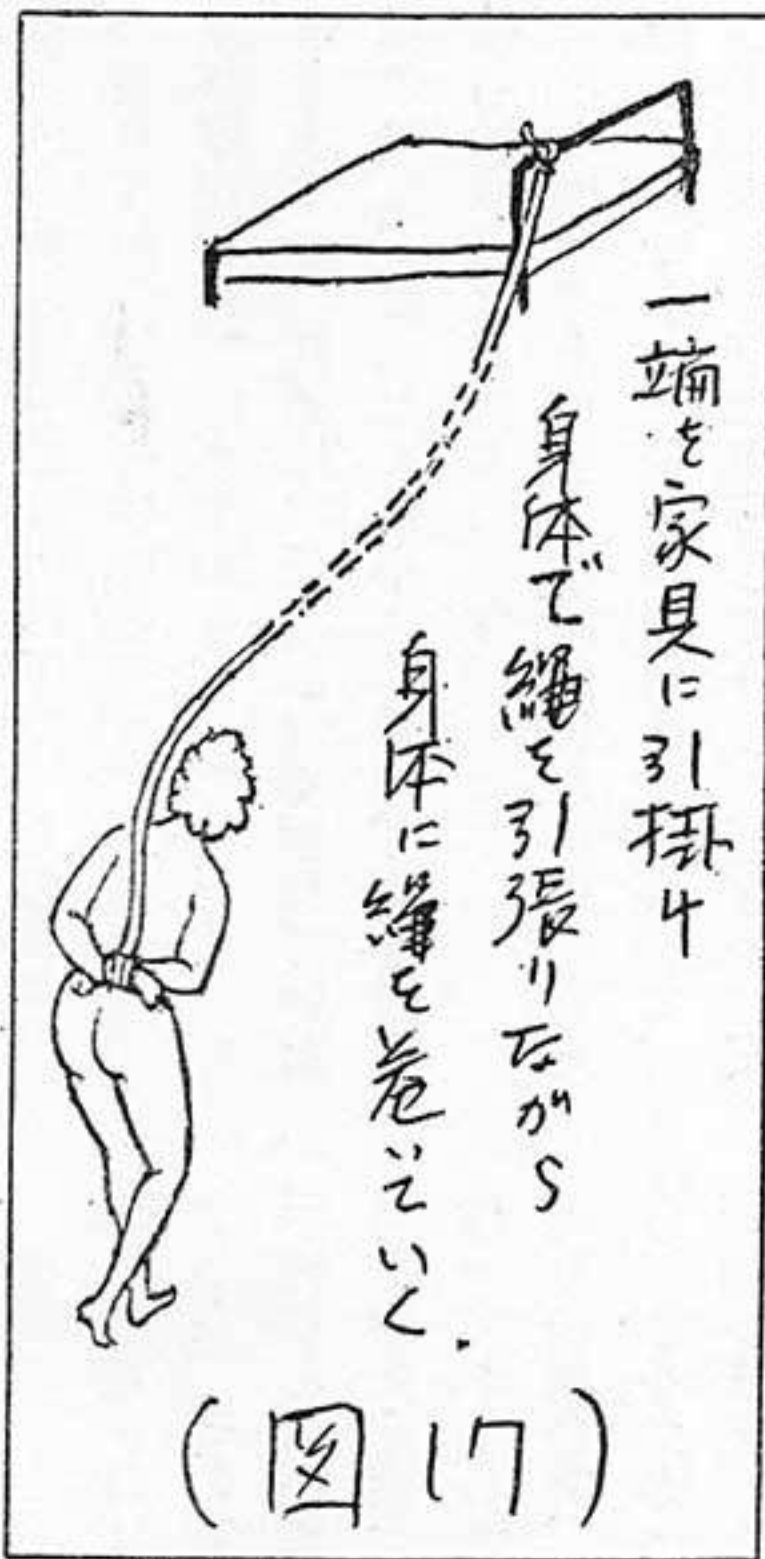 一端を家具に引掛け
身体で縄を引張りながら
身体に縄を巻いていく.
(図17)